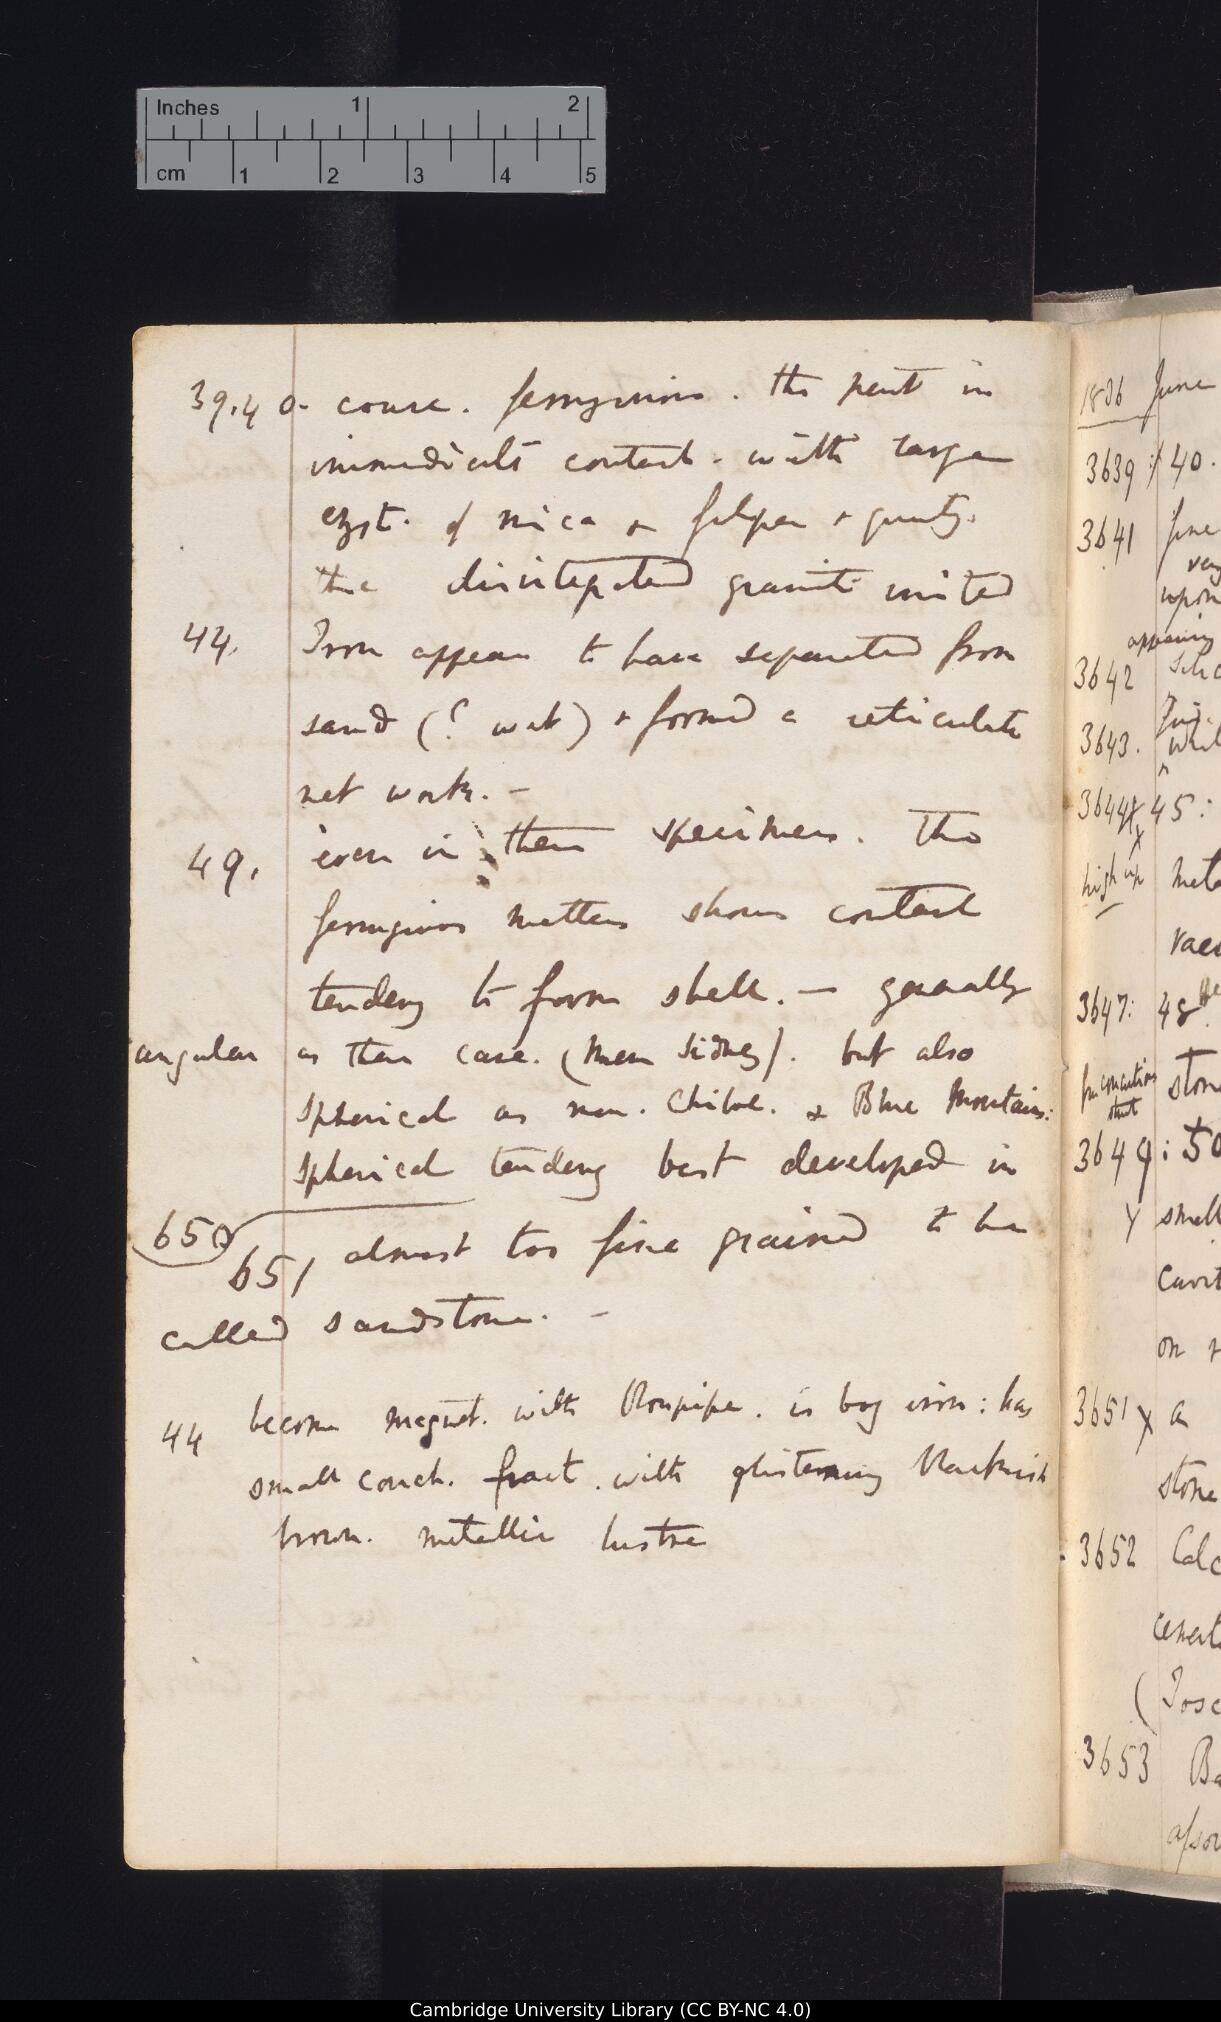 Inches 1 2
cm 1 2 3 4 5
39.40. coarse. ferruginous. the part in
immediate contact. with large
cryst. of mica & felspar & quartz.
the disintegrated granite united
44. Iron appears to have separated from
sand (? wet) & formed a reticulate
net work. —
49. even in these specimens. The
ferruginous matter shows constant
tendency to form shell. — generally
angular as their case. (near Sidney). but also
spherical as near. Chiloe. & Blue Mountains:
spherical tendency best developed in
650
651 almost too fine grained to be
called sandstone. —
44 become magnet. with Blowpipe. is bog iron: has
small conch. fract. with glistening blackish
brown. metallic lustre
1836 June
3639 : 40.
3641 fine
very
upon
appearing
3642
3643.
3644 45:
high up
3647: 48
stone
3649: 50
small
on
3651 x a
stone
3652 Calc
3653
Cambridge University Library (CC BY-NC 4.0)